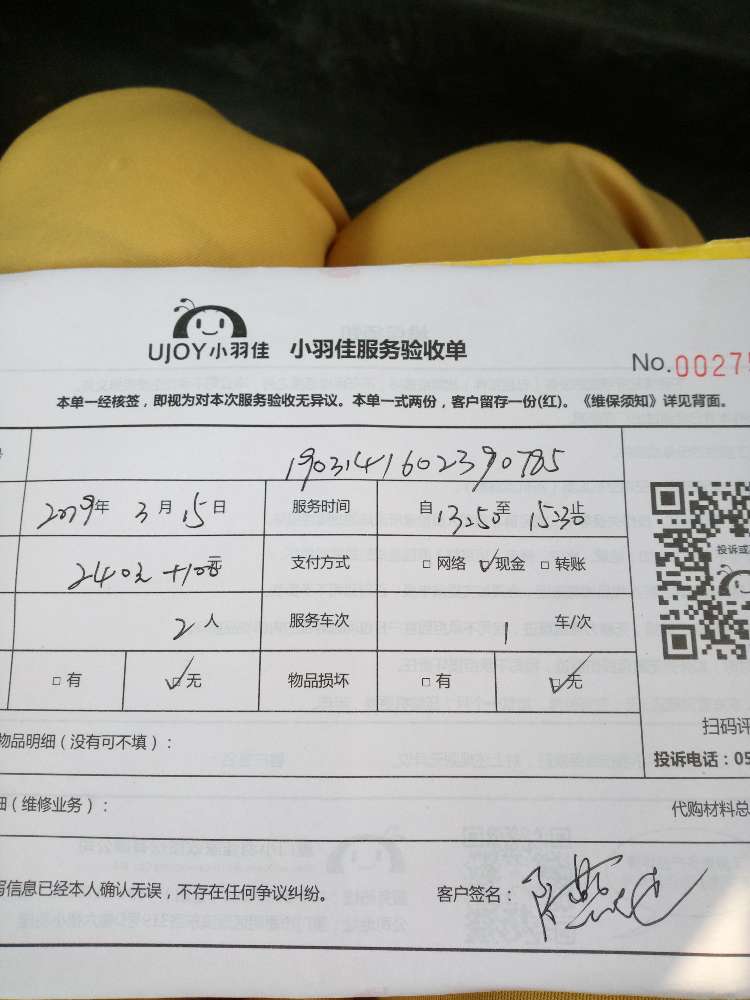 UJOY小羽佳 小羽佳服务验收单
No.00275
本单一经核签，即视为对本次服务验收无异议。本单一式两份，客户留存一份(红)。《维保须知》详见背面。
1903141602390785
2019年 3月15日 服务时间 自13:50至15:30止
240元+10元 支付方式 □网络 ☑现金 □转账
投诉或
2人 服务车次 1 车/次
□有 ☑无 物品损坏 □有 ☑无
扫码评
物品明细（没有可不填）：
投诉电话：05
细（维修业务）：
代购材料总
写信息已经本人确认无误，不存在任何争议纠纷。 客户签名：